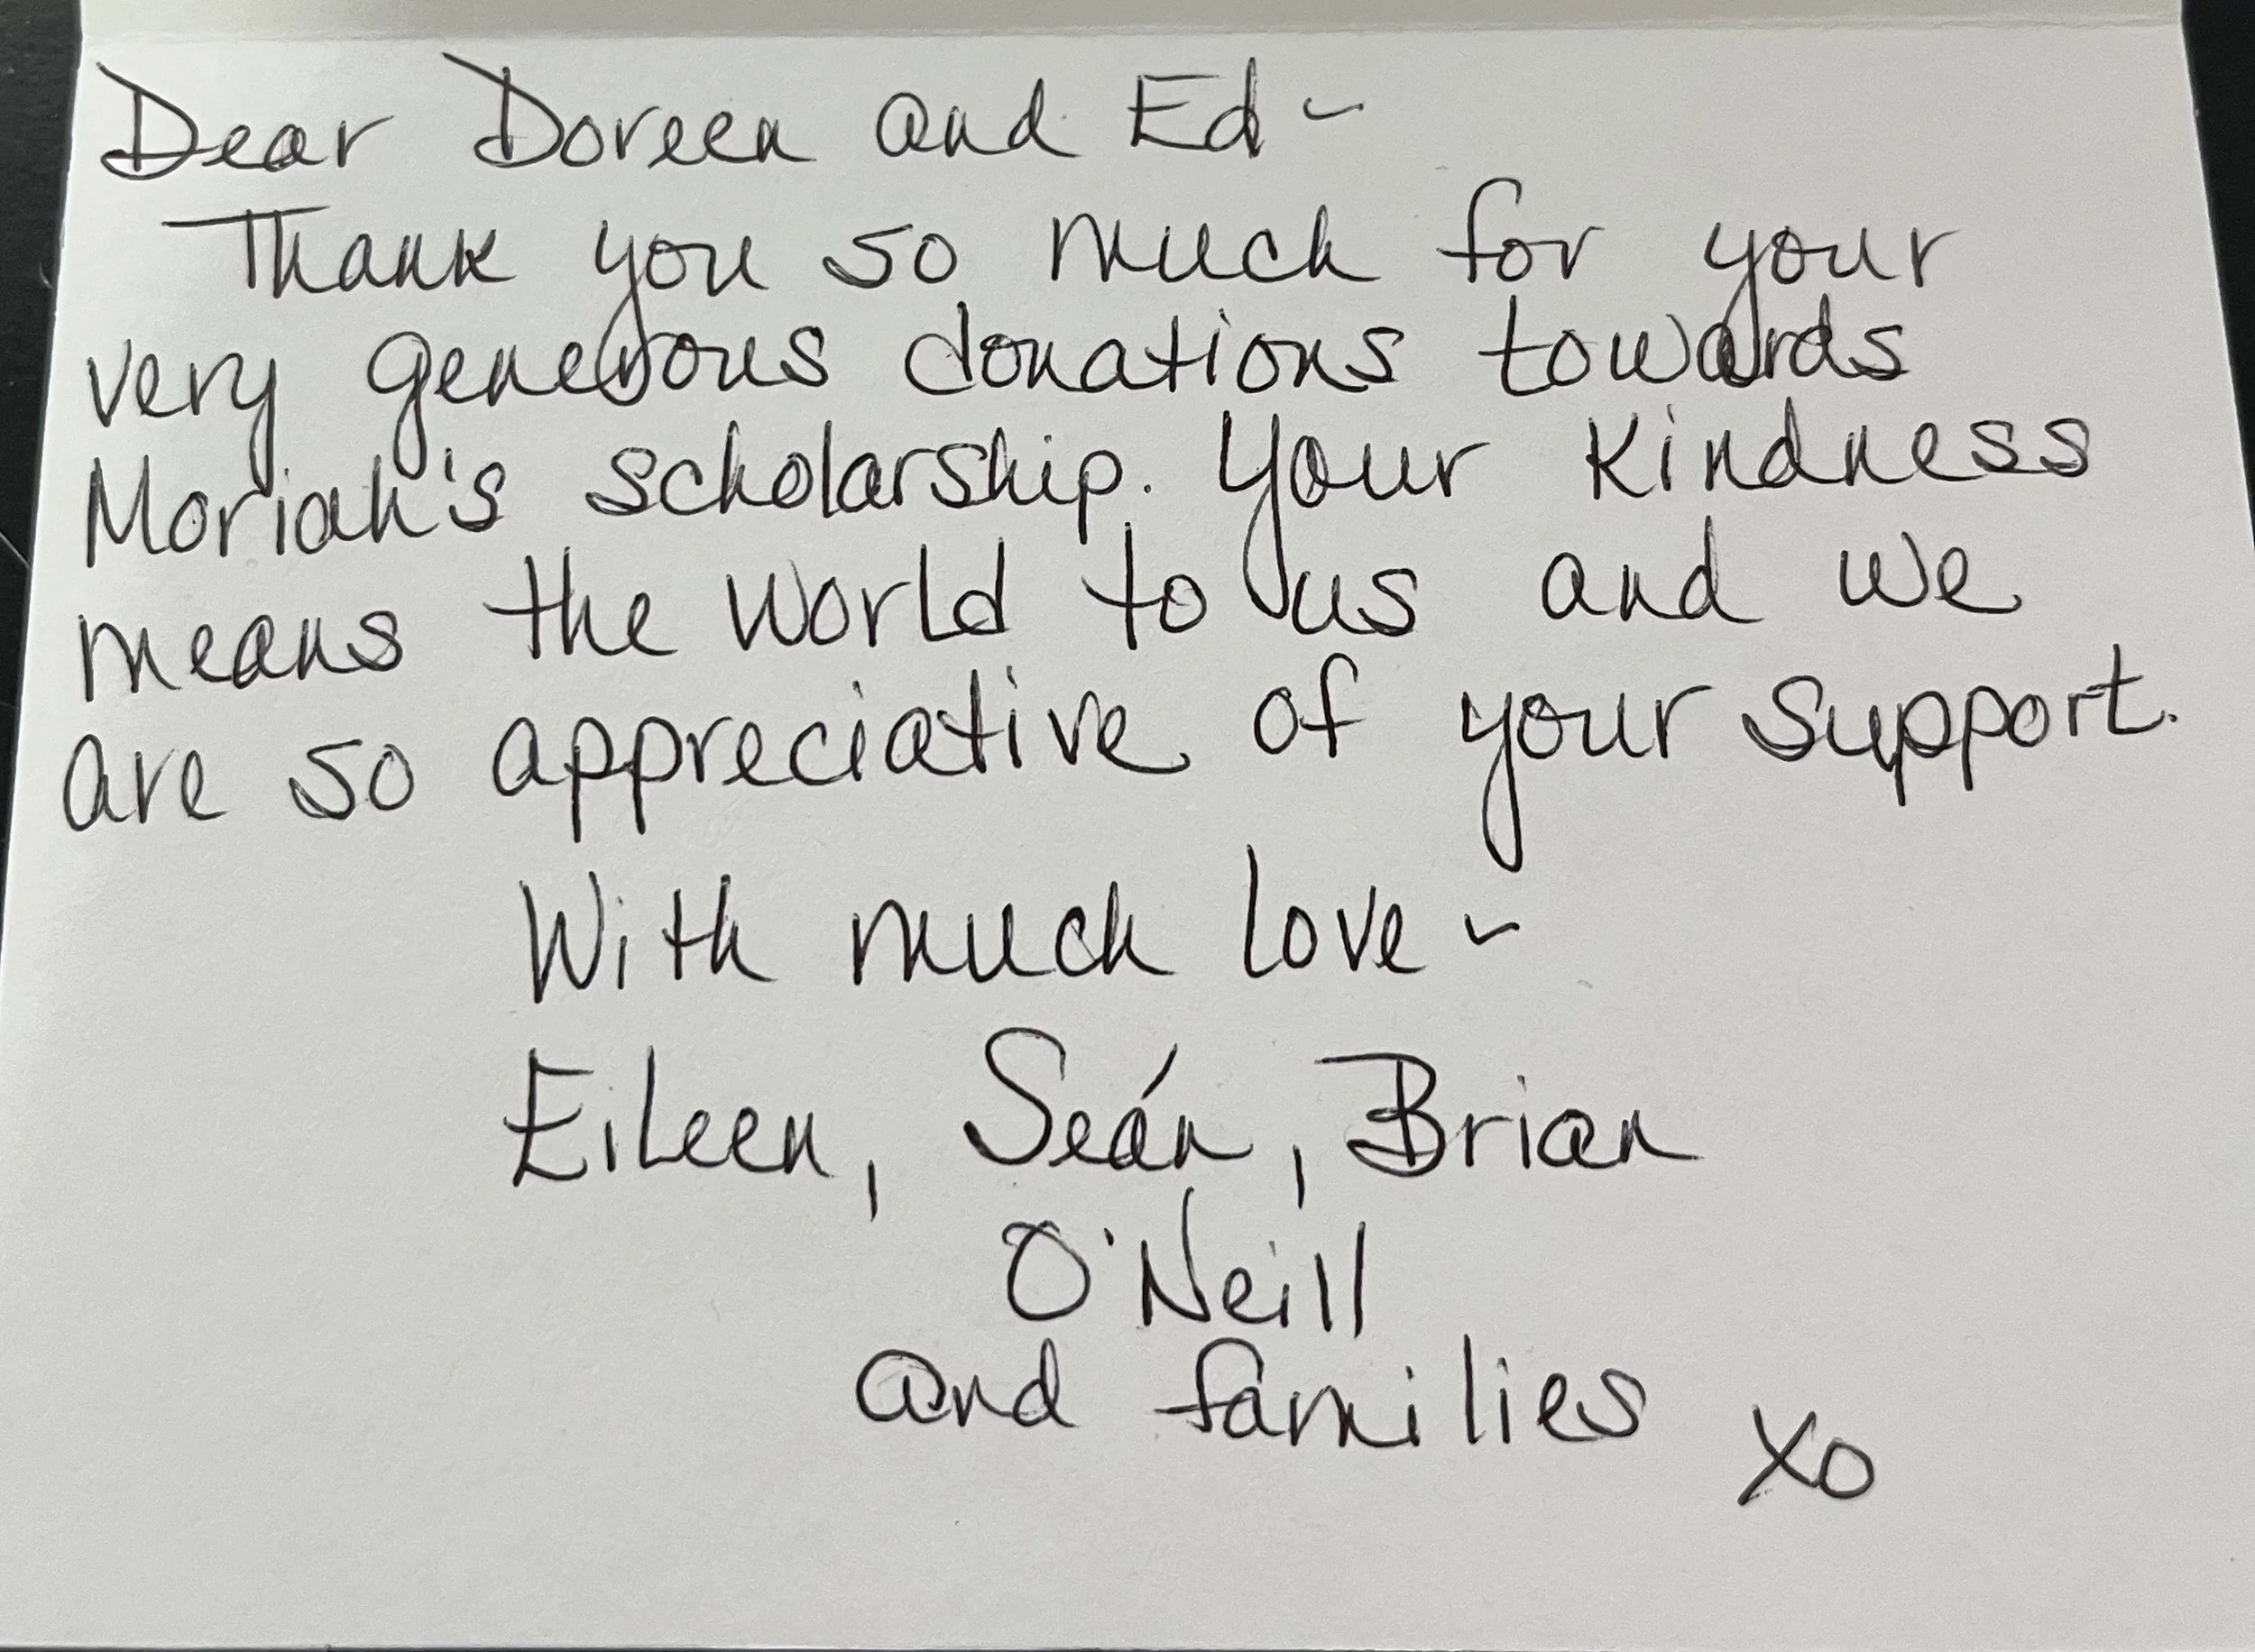 Dear Doreen and Ed~
Thank you so much for your
very generous donations towards
Moriah's scholarship. Your kindness
means the world to us and we
are so appreciative of your support.
With much love~
Eileen, Seán, Brian
O'Neill
and families xo